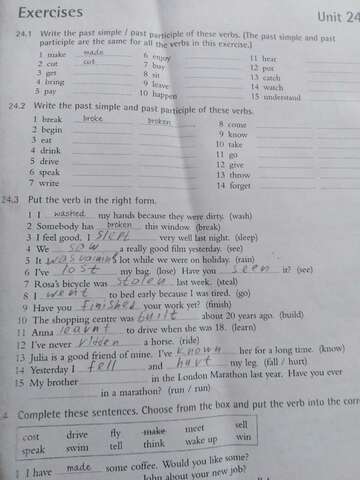 Exercises
Unit 24
24.1 Write the past simple / past participle of these verbs. (The past simple and past
participle are the same for all the verbs in this exercise.)
1 make made 6 enjoy 11 hear
2 cut cut 7 buy 12 put
3 get 8 sit 13 catch
4 bring 9 leave 14 watch
5 pay 10 happen 15 understand
24.2 Write the past simple and past participle of these verbs.
1 break broke broken 8 come
2 begin 9 know
3 eat 10 take
4 drink 11 go
5 drive 12 give
6 speak 13 throw
7 write 14 forget
24.3 Put the verb in the right form.
1 I washed my hands because they were dirty. (wash)
2 Somebody has broken this window. (break)
3 I feel good. I slept very well last night. (sleep)
4 We sow a really good film yesterday. (see)
5 It was raining lot while we were on holiday. (rain)
6 I've lost my bag. (lose) Have you seen it? (see)
7 Rosa's bicycle was stolen last week. (steal)
8 I went to bed early because I was tired. (go)
9 Have you finished your work yet? (finish)
10 The shopping centre was built about 20 years ago. (build)
11 Anna learnt to drive when she was 18. (learn)
12 I've never ridden a horse. (ride)
13 Julia is a good friend of mine. I've known her for a long time. (know)
14 Yesterday I fell and hurt my leg. (fall / hurt)
15 My brother in the London Marathon last year. Have you ever
in a marathon? (run / run)
4 Complete these sentences. Choose from the box and put the verb into the corre
cost drive fly make meet sell
speak swim tell think wake up win
1 I have made some coffee. Would you like some?
John about your new job?